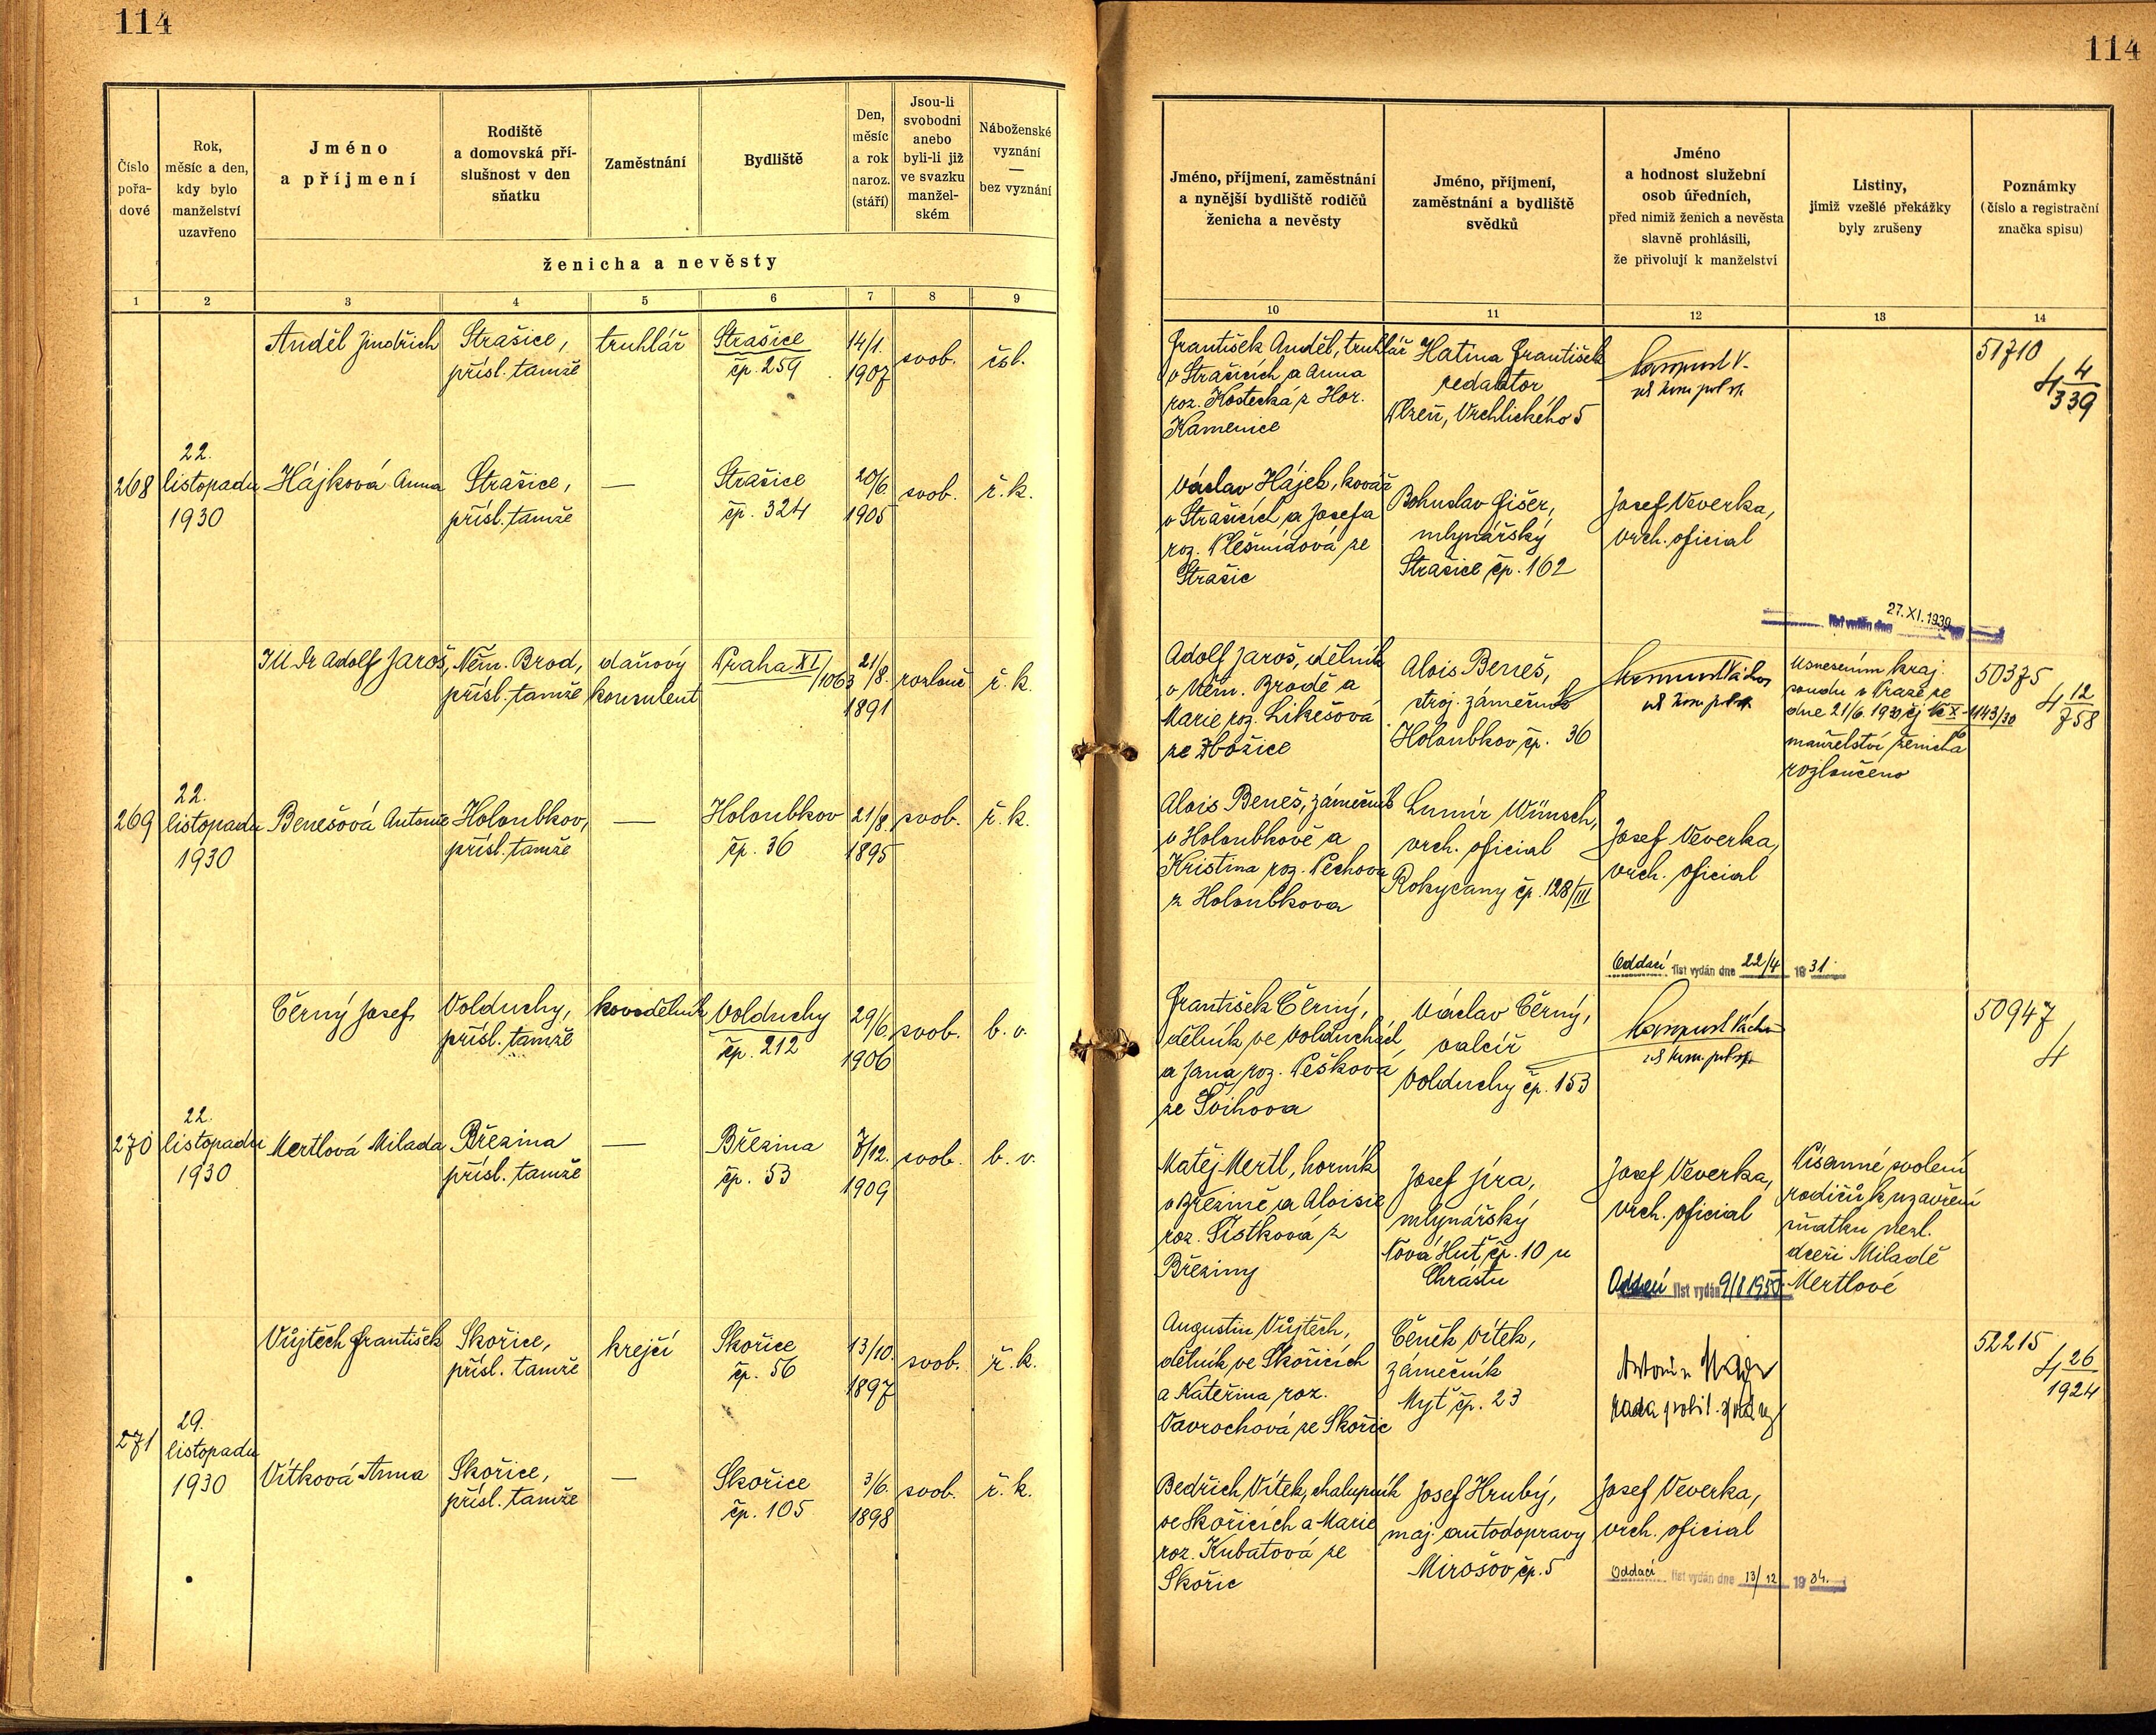 114
Číslo
pořa-
dové
Rok,
měsíc a den,
kdy bylo
manželství
uzavřeno
Jméno
a příjmení
Rodiště
a domovská pří-
slušnost v den
sňatku
Zaměstnání
Bydliště
Den,
měsíc
a rok
naroz.
(stáří)
Jsou-li
svobodni
anebo
byli-li již
ve svazku
manžel-
ském
Náboženské
vyznání
—
bez vyznání
ženicha a nevěsty
1 2 3 4 5 6 7 8 9
Anděl Jindřich
Strašice,
přísl. tamže
truhlář
Strašice
čp. 259
14/1.
1907
svob.
čsl.
268
22.
listopadu
1930
Hájková Anna
Strašice,
přísl. tamže
—
Strašice
čp. 324
20/6.
1905
svob.
ř. k.
JUDr Adolf Jaroš,
Něm. Brod,
přísl. tamže
daňový
konsulent
Praha XI
/1063
21/8.
1891
rozlouč
ř. k.
269
22.
listopadu
1930
Benešová Antonie
Holoubkov,
přísl. tamže
—
Holoubkov
čp. 36
21/8.
1895
svob.
ř. k.
Černý Josef
Volduchy,
přísl. tamže
kovodělník
Volduchy
čp. 212
29/6.
1906
svob.
b. v.
270
22.
listopadu
1930
Mertlová Milada
Březina
přísl. tamže
—
Březina
čp. 53
7/12.
1909
svob.
b. v.
Vůjtěch František
Skořice,
přísl. tamže
krejčí
Skořice
čp. 56
13/10.
1897
svob.
ř. k.
271
29.
listopadu
1930
Vítková Anna
Skořice,
přísl. tamže
—
Skořice
čp. 105
3/6.
1898
svob.
ř. k.
114
Jméno, příjmení, zaměstnání
a nynější bydliště rodičů
ženicha a nevěsty
Jméno, příjmení,
zaměstnání a bydliště
svědků
Jméno
a hodnost služební
osob úředních,
před nimiž ženich a nevěsta
slavně prohlásili,
že přivolují k manželství
Listiny,
jimiž vzešlé překážky
byly zrušeny
Poznámky
(číslo a registrační
značka spisu)
10 11 12 13 14
František Anděl, truhlář
v Strašicích a Anna
roz. Kostecká z Hor.
Kamenice
Hatina František
redaktor
Plzeň, Vrchlického 5
51710
4 4
339
Václav Hájek, kovář
v Strašicích a Josefa
roz. Plešmídová ze
Strašic
Bohuslav Fišer,
mlynářský
Strašice čp. 162
Josef Veverka,
vrch. oficial
list vydán dne 27. XI. 1939
Adolf Jaroš, dělník
v Něm. Brodě a
Marie roz. Likešová
ze Zbožice
Alois Beneš,
stroj. zámečník
Holoubkov čp. 36
Usnesením kraj.
soudu v Praze ze
dne 21/6. 1930 čj Ck X-1143/30
manželství ženicha
rozloučeno
50375
4 12
758
Alois Beneš, zámečník
v Holoubkově a
Kristina roz. Pechova
z Holoubkova
Lumír Wünsch,
vrch. oficial
Rokycany čp. 128/III
Josef Veverka,
vrch. oficial
Oddací list vydán dne 22/4 1931
František Černý,
dělník ve Volduchách,
a Jana roz. Pešková
ze Švihova
Václav Černý,
valcíř
Volduchy čp. 153
50947
4
Matěj Mertl, horník
v Březině a Aloisie
roz. Šístková z
Březiny
Josef Jíra,
mlynářský
Nová Huť čp. 10 u
Chrástu
Josef Veverka,
vrch. oficial
Písemné svolení
rodičů k uzavření
sňatku nezl.
dceři Miladě
Mertlové
Oddací list vydán 9/8 1950
Augustin Vůjtěch,
dělník ve Skořicích
a Kateřina roz.
Vavrochová ze Skořic
Čeněk Vítek,
zámečník
Myť čp. 23
Antonín
rada polit. správy
52215
4 26
1924
Bedřich Vítek, chalupník
ve Skořicích a Marie
roz. Kubatová ze
Skořic
Josef Hrubý,
maj. autodopravy
Mirošov čp. 5
Josef Veverka,
vrch. oficial
Oddací list vydán dne 13/12 1934.